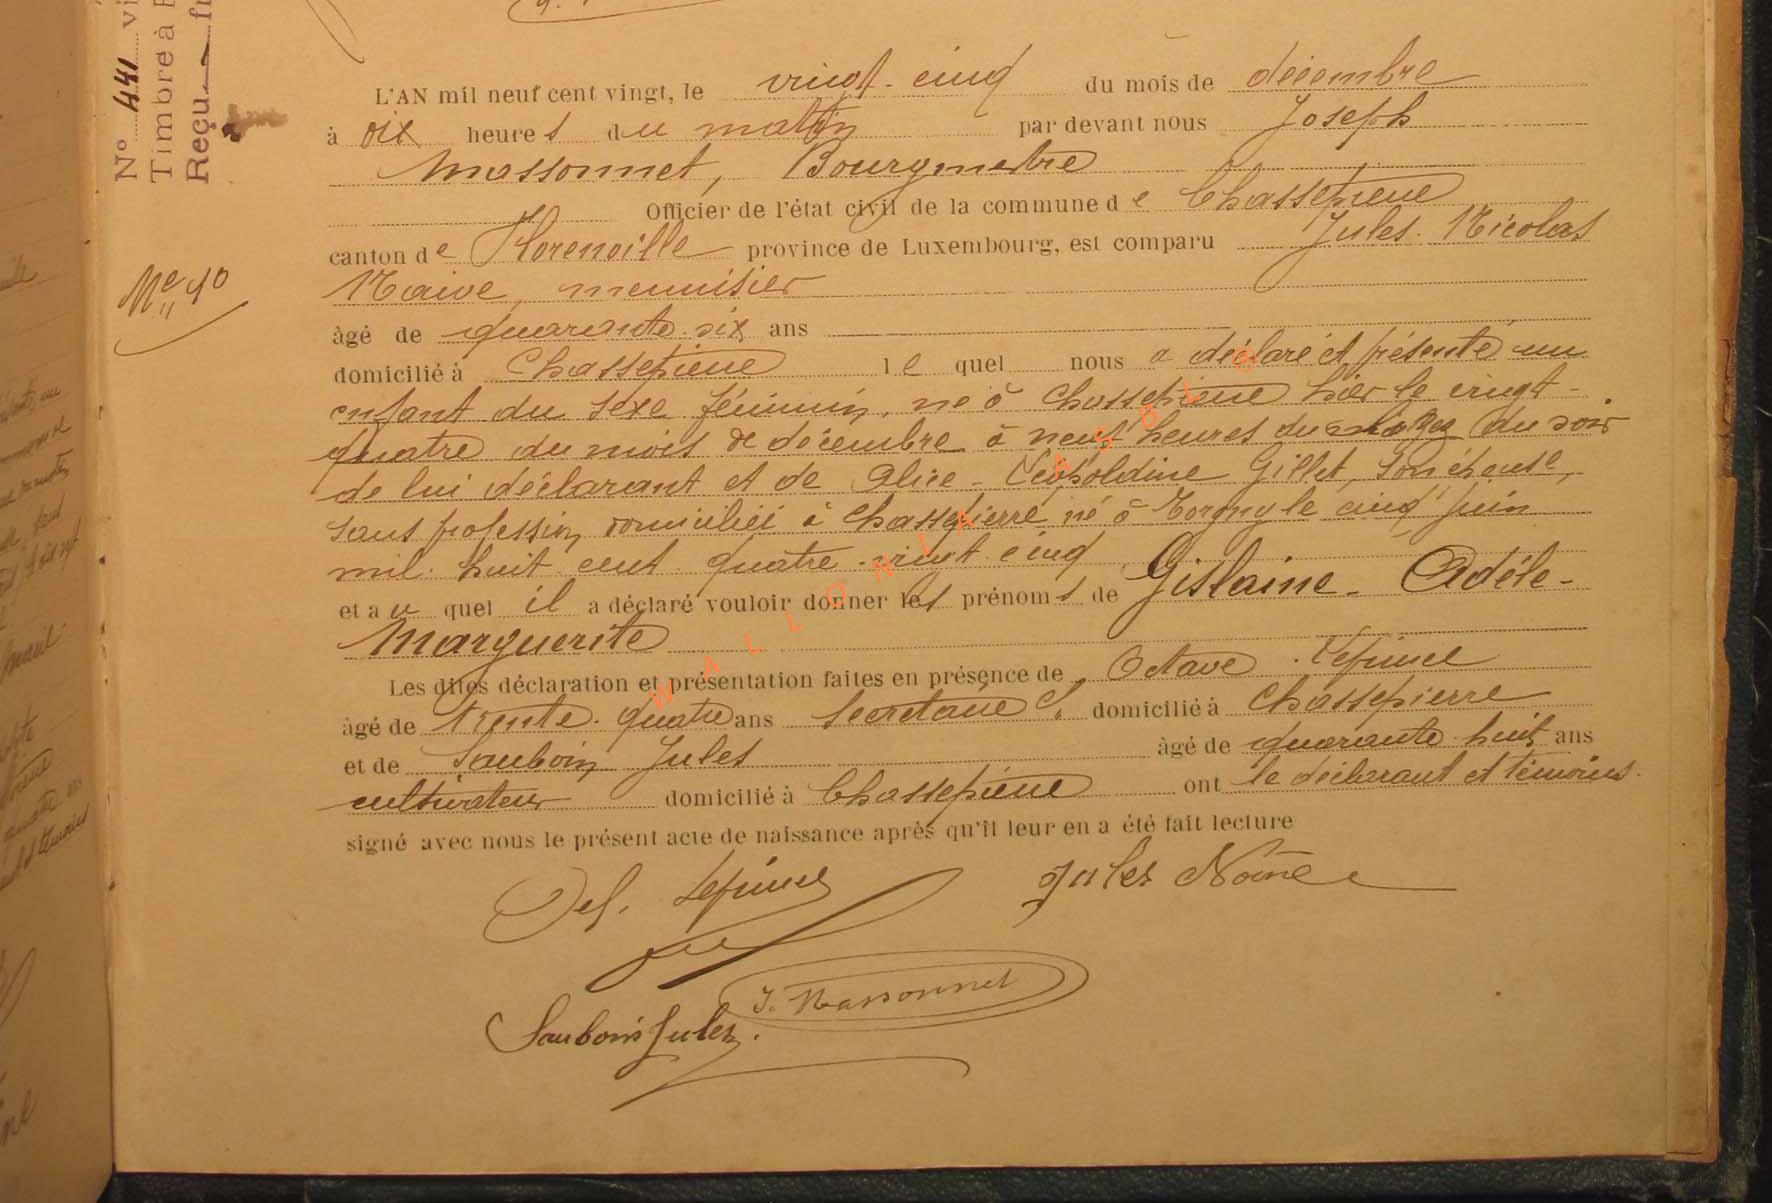 N° 441
Timbre à
Reçu
L'AN mil neuf cent vingt, le vingt-cinq du mois de décembre
à dix heures du matin par devant nous Joseph
Massonnet, Bourgmestre
Officier de l'état civil de la commune de Chassepierre
canton de Florenville province de Luxembourg, est comparu Jules-Nicolas
N° 40
menuisier
âgé de quarante-six ans
domicilié à Chassepierre lequel nous a déclaré et présenté un
enfant du sexe féminin, né à Chassepierre hier le vingt-
quatre du mois de décembre à neuf heures du du soir
de lui déclarant et de Alice-Léopoldine Gillet, son épouse,
sans profession, domiciliée à Chassepierre, né à Torgny le cinq juin
mil huit cent quatre-vingt-cinq
et au quel il a déclaré vouloir donner les prénoms de Gislaine-Adèle-
Marguerite
Les dites déclaration et présentation faites en présence de Octave Lefèvre
âgé de trente-quatre ans Secrétaire Cl. domicilié à Chassepierre
et de Sauboin Jules âgé de quarante-huit ans
cultivateur domicilié à Chassepierre ont le déclarant et témoins
signé avec nous le présent acte de naissance après qu'il leur en a été fait lecture
Jules
J. Massonnet
Sauboin Jules.
WALLONIA ASBL ©